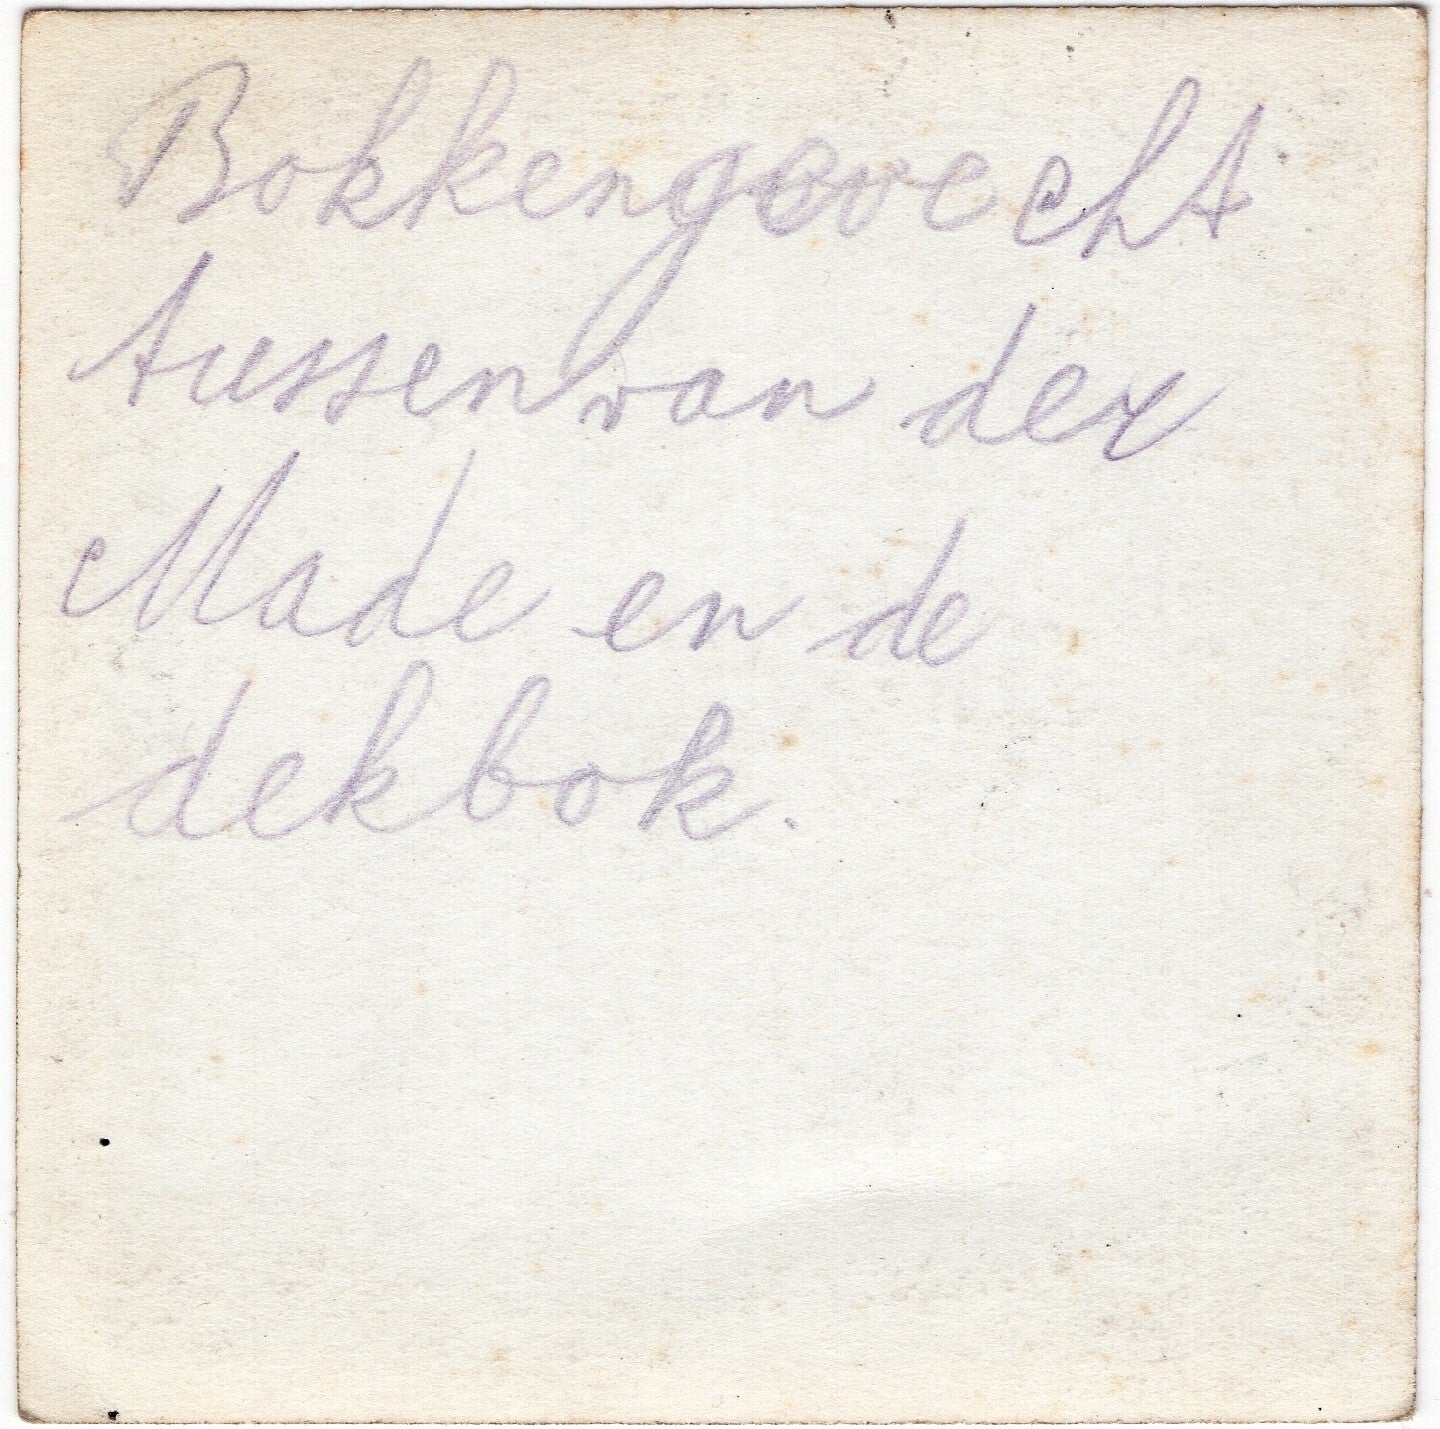 Bokkengevecht
tussen van der
Made en de
dekbok.